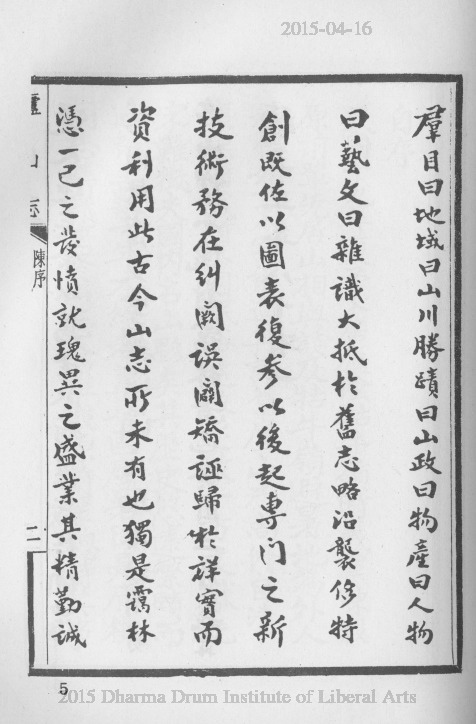 2015-04-16
羣目曰地域曰山川勝蹟曰山政曰物產曰人物
曰藝文曰雜識大抵於舊志略沿襲侈特
創既佐以圖表復參以後起專门之新
技術務在糾闕誤闢矯誣歸於詳實而
資利用此古今山志所未有也獨是靄林
憑一己之發憤就瑰異之盛業其精勤誠
廬山志
陳序
二
5
2015 Dharma Drum Institute of Liberal Arts